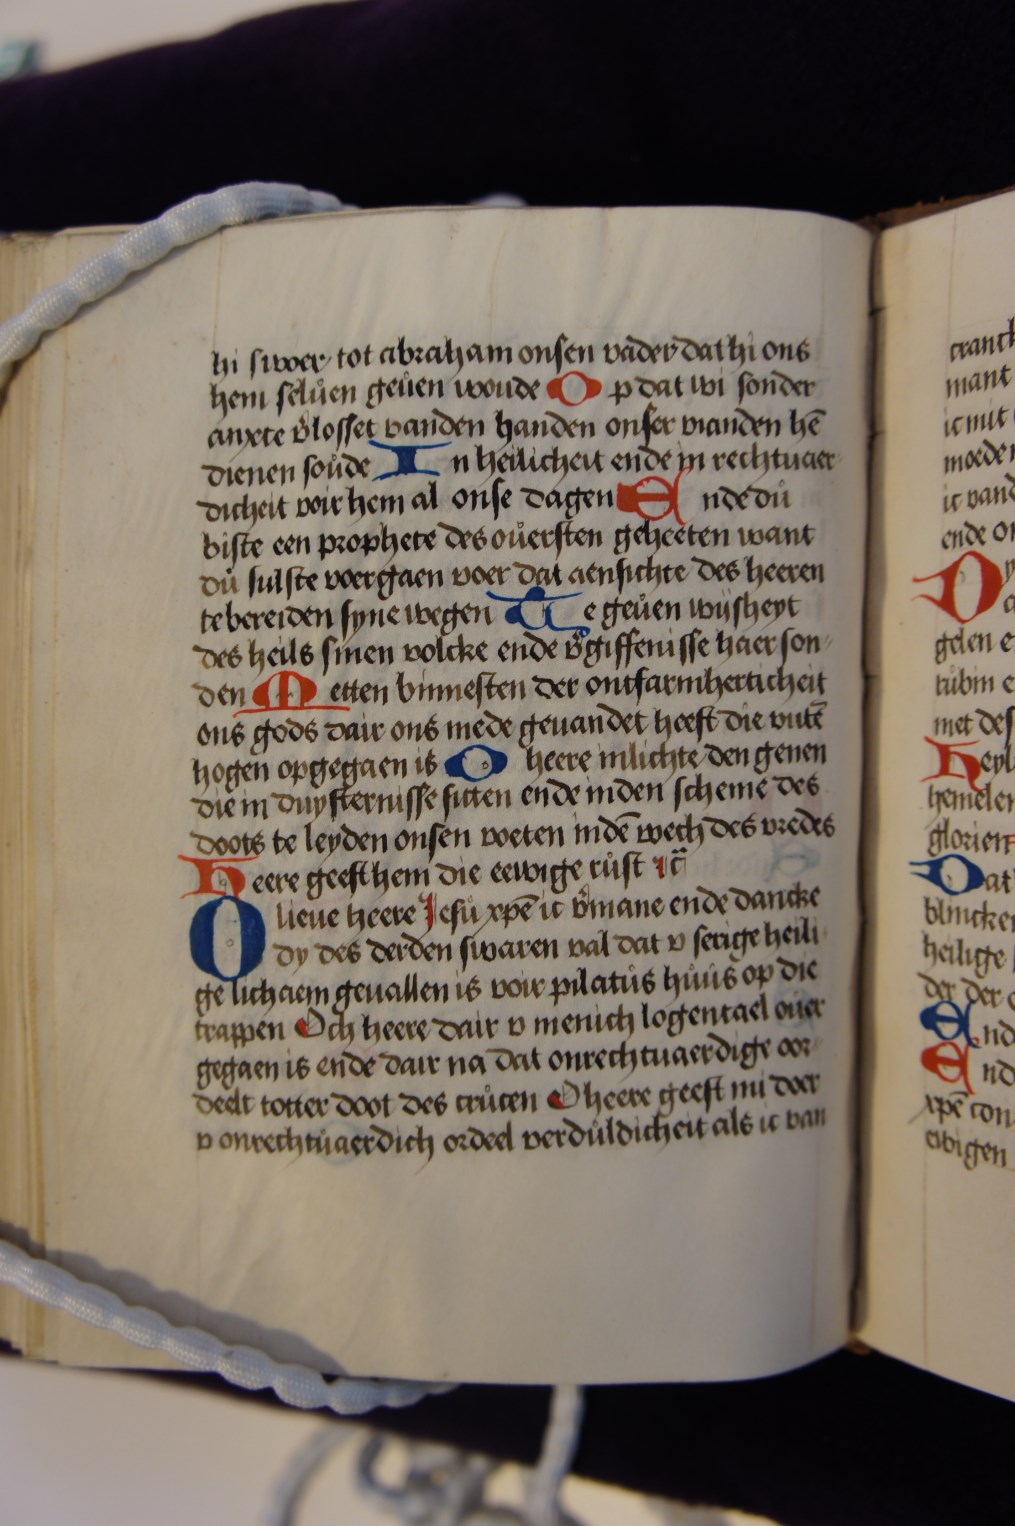 hi swoer tot abraham onsen vader dat hi ons
hem seluen geuen woude Op dat wi sonder
anxte v̓losset vanden handen onser vianden hē
dienen soude In heilicheit ende in rechtuaer
dicheit voir hem al onse dagen Ende du
biste een prophete des ouersten geheeten want
du sulste voergaen voer dat aensichte des heeren
te bereiden syne wegen Te geuen wijsheyt
des heils sinen volcke ende v̓giffenisse haer son
den Metten binnesten der ontfarmherticheit
ons gods dair ons mede geuandet heeft die vutē
hogen opgegaen is O heere inlichte den genen
die in duysternisse sitten ende inden scheme des
doots te leyden onsen voeten indē wech des vredes
Heere geeft hem die eewige rust
O lieue heere Jesu xpē ic v̓mane ende dancke
dy des derden swaren val dat v serige heili
ge lichaem geuallen is voir pilatus huus op die
trappen Och heere dair v menich logentael ouer
gegaen is ende dair na dat onrechtuaerdige oor
deelt totter doot des crucen O heere geeft mi doer
v onrechtuaerdich ordeel verduldicheit als ic van
mant
ende
met
hemelen
heilige
der der
xpē
ewigen